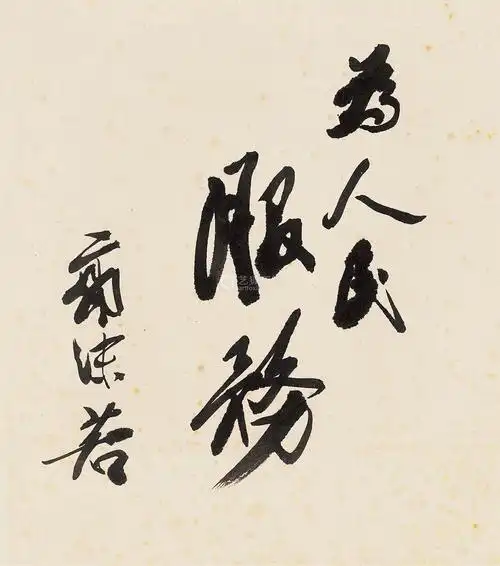 為人民
服務
郭沫若